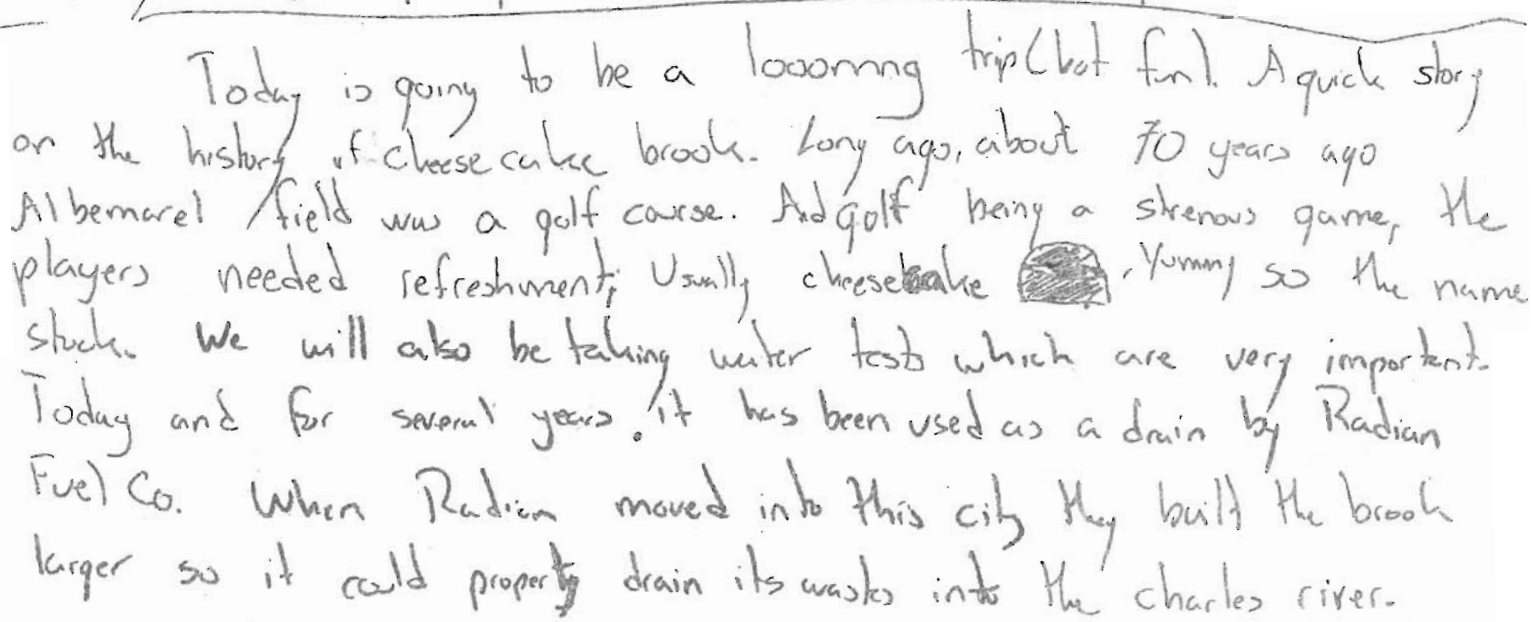 Today is going to be a looonnng trip (but fun). A quick story
on the history of cheese cake brook. Long ago, about 70 years ago
Albemarel field was a golf course. And golf being a strenous game, the
players needed refreshment; Usually cheesecake . Yummy so the name
stuck. We will also be taking water tests which are very important.
Today and for several years, it has been used as a drain by Radian
Fuel Co. When Radian moved into this city they built the brook
larger so it could properly drain its wastes into the charles river.